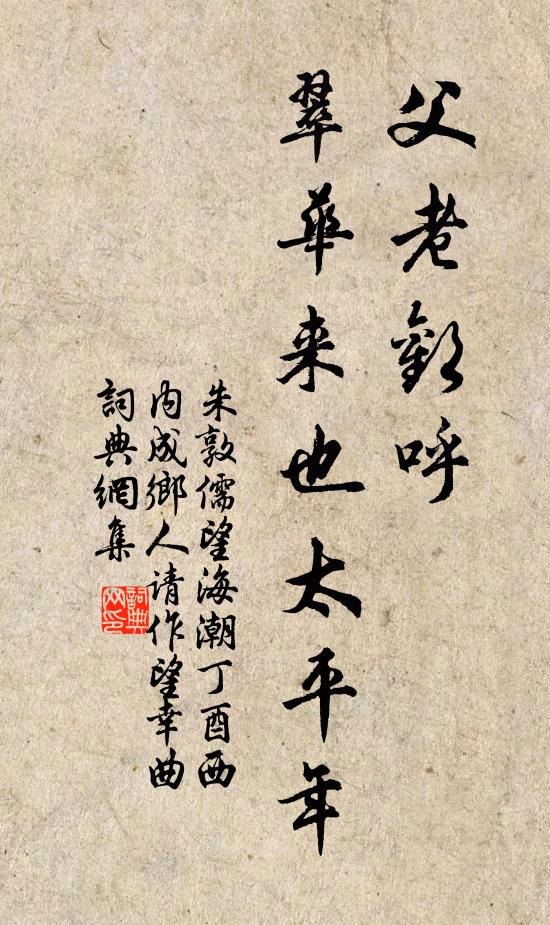 父老歡呼
翠華来也太平年
朱敦儒望海潮丁酉西
内成鄉人请作望幸曲
詞典網集
詞典
网印